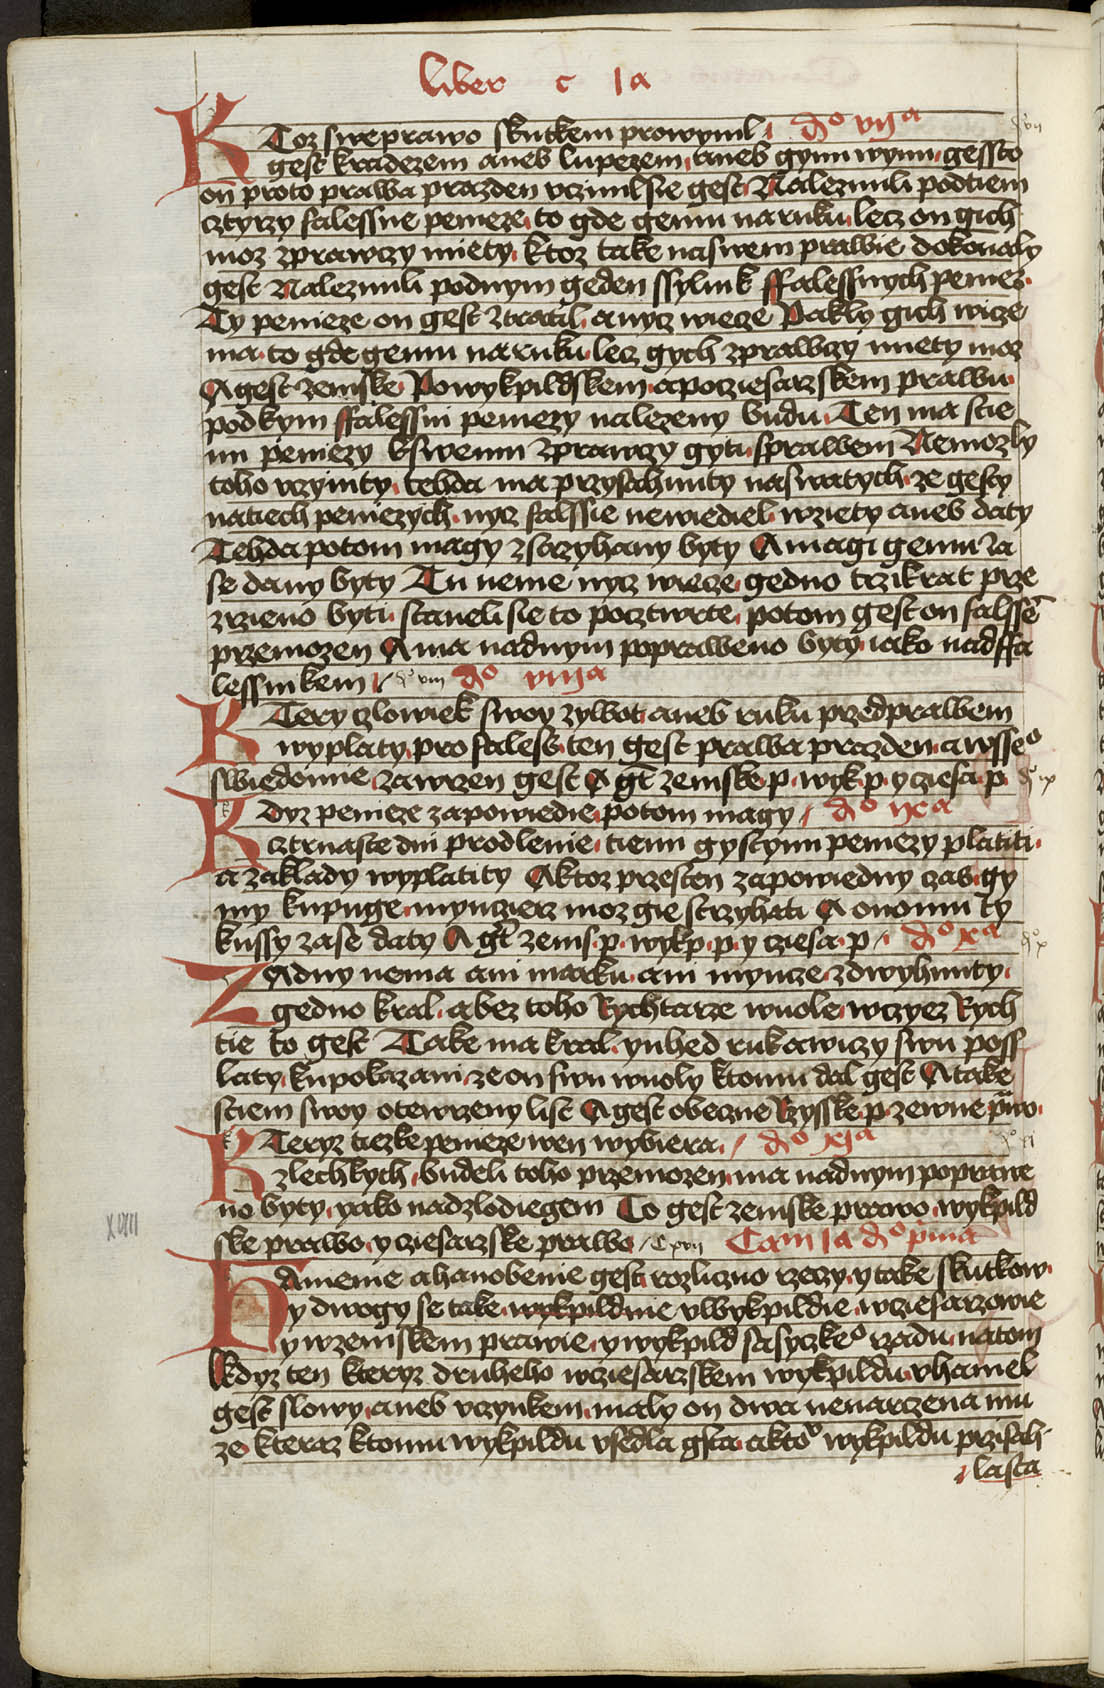 liber c Ia
KToz sweprawo skutkem prowynil · do vija
gest kradezem aneb lupezem, aneb gynu wynu, gessto
on proto prawa prazden vczinilsie gest Nalezmuli podtiem
cztyrzy falessne penieze, to gde gemu naruku, lecz on gich
moz zprawczy miety, ktoz take naswem prawie dokonaly
gest Nalezmuli podnym geden ssylink ffalessnych peniez.
Ty penieze on gest ztratil, a nycz wiecze Pakly gich wicze
ma, to gde gemu naruku, lecz gych zprawczy miety moz
A gest zemske Powykpildskem, apocziesarzskem prawu.
podkym ffalessni peniezy nalezeny budu, Ten ma stie
mi peniezy kswemu zprawczy gyti, sprawem Nemozly
toho vczynity, tehda ma przysahnuty naswatych, ze gesty
natiech peniezych, nycz falssie newiediel, wziety aneb daty
Tehda potom magy zsstrzyhany byty A magi gemu za
se dany byty Tu neme nycz wiecze, gedno trzikrat prze
zrzieno byti, staneli sie to pocztwrte, potom gest on falsse
przemozen A ma nadnym popraweno byty, iako nadffa
lessnikem / do viii do viija
KTery czlowiek swoy zywot, aneb ruku przedprawem
wyplaty, pro faless, ten gest prawa prazden, a wsseo
swiedomie, zawrzen gest A gt zemske p. wyk. p. y ciesa. p. do ix
KDyz penieze zapowiedie, potom magy / do nea
cztrnaste dni prodlenie, tiemi gystymi peniezy platiti.
a zaklady wyplatity A ktoz przesten zapowiedny czas, gy
my kupuge, mynczierz moz gie strzyhati A onomu ty
kussy zase daty A gt zems. p. wykp. p. y ciesa. p / do xa
ZAdny nema ani marku, ani myncze, zdwyhnuty,
gedno kral, abez toho Rychtarze wuole, wczyez Rych
tie to gest Take ma kral, ynhed rukawiczy swu poss
laty, kupokazani, ze on swu wuoly ktomu dal gest A take
stiem swoy otewrzeny list A gest obeczne Rzysske. p. zewne prawo.
KTeryz tiezke penieze wen wybiera, / do xja
zlechkych, budeli toho przemozen, ma nadnym poprawe
no byty, yako nadzlodiegem To gest zemske prawo, wykpild
ske prawo, y ciesarzske prawo / C xvii Cam Ia do prima
HAnienie ahanobenie gest, rozliczno rzeczy, y take skutkow.
y dwogy se take wykpildnie vwykpildie, wciesarzowie
y wzemskem prawie, ywykpild sasyczkeo rzadu, natom
Kdyz ten kteryz druheho wciesarzskem wykpildu, vhaniel
gest slowy, aneb vczynkem, maly on dwa nenarczena mu
ze, kteraz ktomu wykpildu vsedla gsta, akto wykpildu przisah.
lasta
XVIII